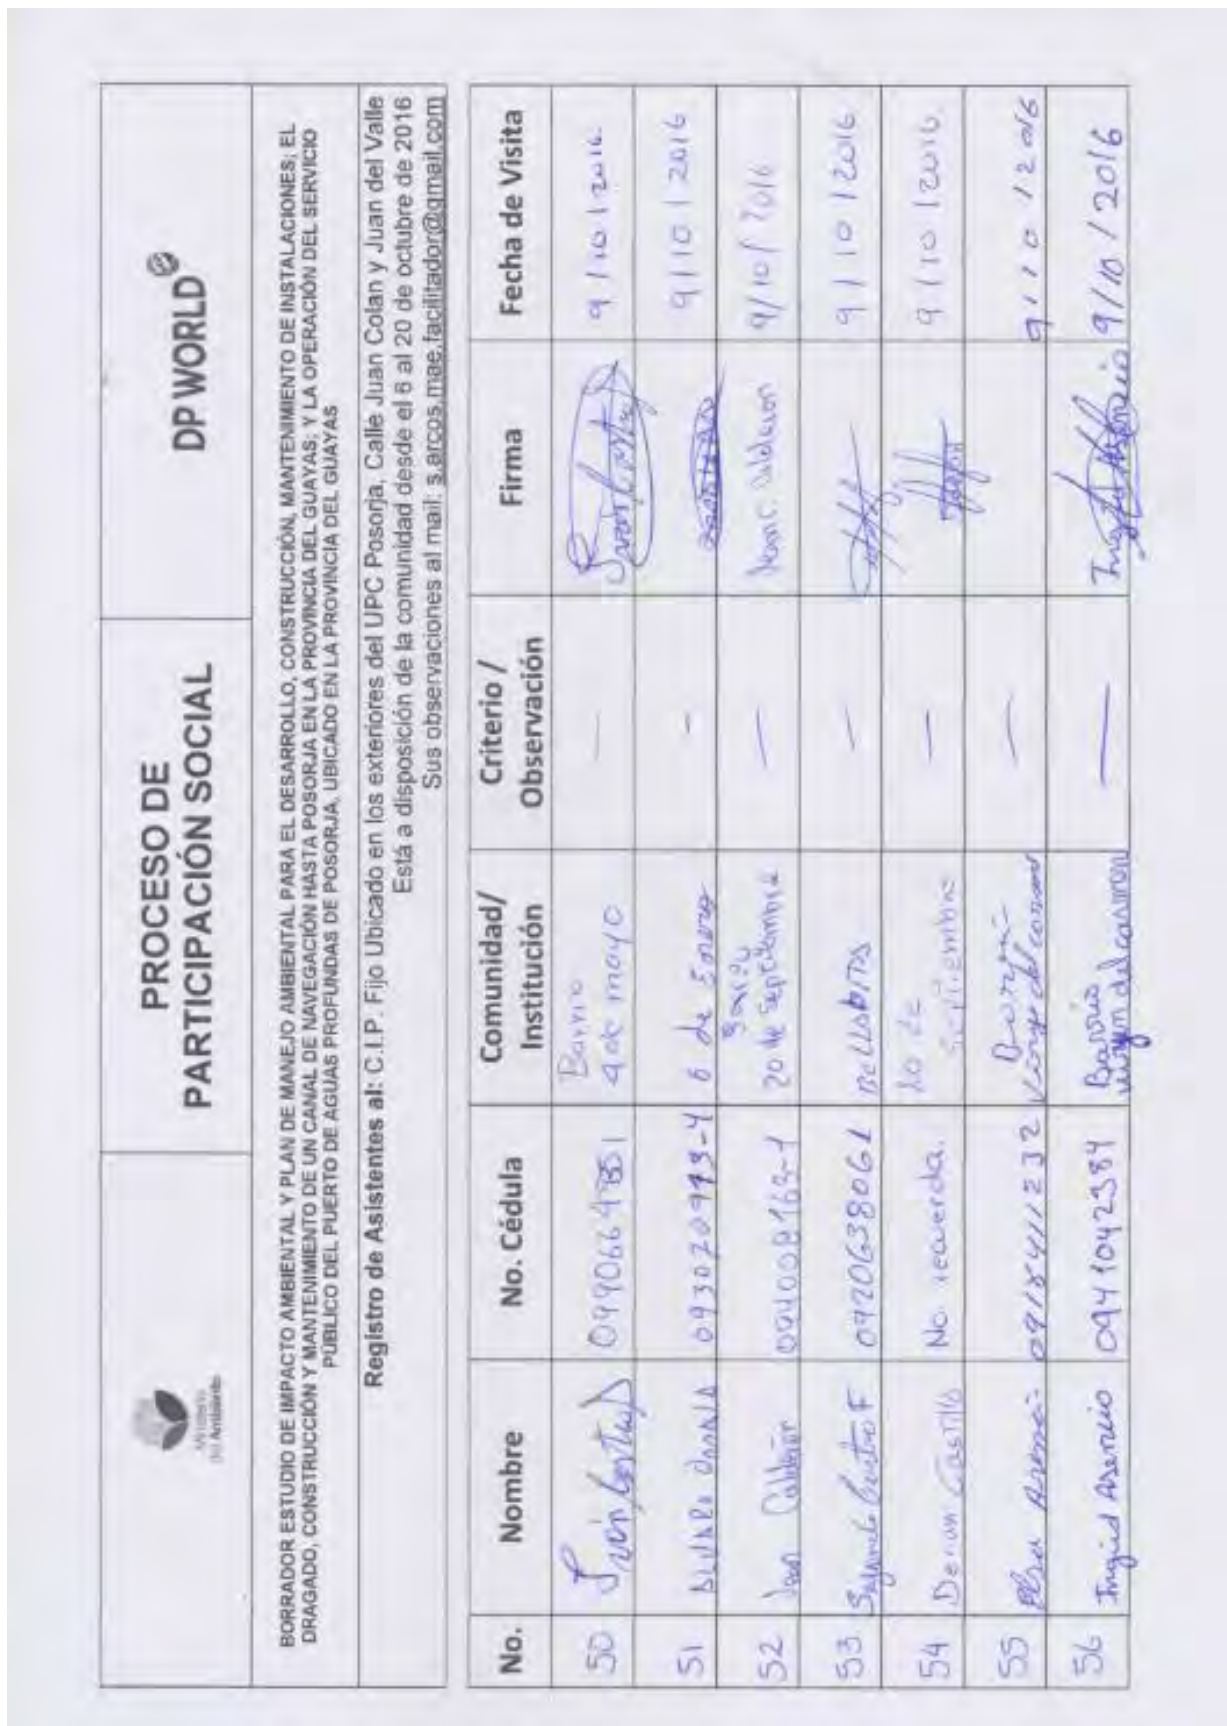 Ministerio
del Ambiente
PROCESO DE
PARTICIPACIÓN SOCIAL
DP WORLD
BORRADOR ESTUDIO DE IMPACTO AMBIENTAL Y PLAN DE MANEJO AMBIENTAL PARA EL DESARROLLO, CONSTRUCCIÓN, MANTENIMIENTO DE INSTALACIONES; EL
DRAGADO, CONSTRUCCIÓN Y MANTENIMIENTO DE UN CANAL DE NAVEGACIÓN HASTA POSORJA EN LA PROVINCIA DEL GUAYAS; Y LA OPERACIÓN DEL SERVICIO
PÚBLICO DEL PUERTO DE AGUAS PROFUNDAS DE POSORJA, UBICADO EN LA PROVINCIA DEL GUAYAS
Registro de Asistentes al: C.I.P. Fijo Ubicado en los exteriores del UPC Posorja, Calle Juan Colan y Juan del Valle
Está a disposición de la comunidad desde el 6 al 20 de octubre de 2016
Sus observaciones al mail: s.arcos.mae.facilitador@gmail.com
No. Nombre No. Cédula Comunidad/ Institución Criterio / Observación Firma Fecha de Visita
50 Barrio 4 de mayo — 9/10/2016
51 6 de Enero - 9/10/2016
52 Barrio 20 de Septiembre — 9/10/2016
53 Castro F 0920638061 Bellabitas — 9/10/2016
54 Castillo No. recuerda. de Septiembre — 9/10/2016
55 0918411232 — 9/10/2016
56 Ingrid Asencio 0941042384 Barrio virgen del carmen — 9/10/2016